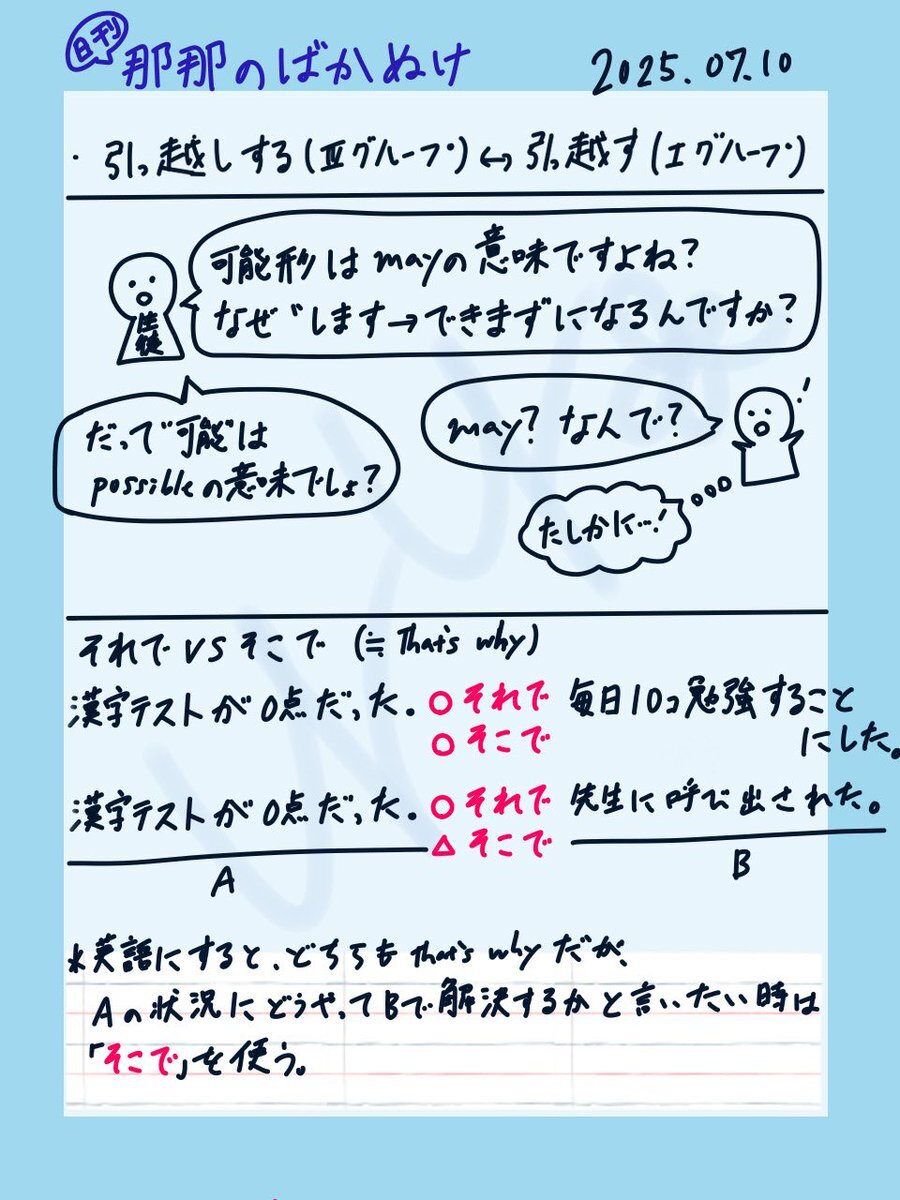 日刊 那那のばかぬけ 2025.07.10
・引っ越しする(Ⅲグループ)↔引っ越す(Iグループ)
可能形はmayの意味ですよね?
なぜ"します→できます"になるんですか?
生徒
だって"可能"は
possibleの意味でしょ?
may? なんで?
たしかに…!
それで VS そこで (≒ That's why)
漢字テストが0点だった。○それで 毎日10コ勉強すること
○そこで にした。
漢字テストが0点だった。○それで 先生に呼び出された。
△そこで
A B
*英語にすると、どちらもthat's whyだが、
Aの状況にどうやってBで解決するかと言いたい時は
「そこで」を使う。